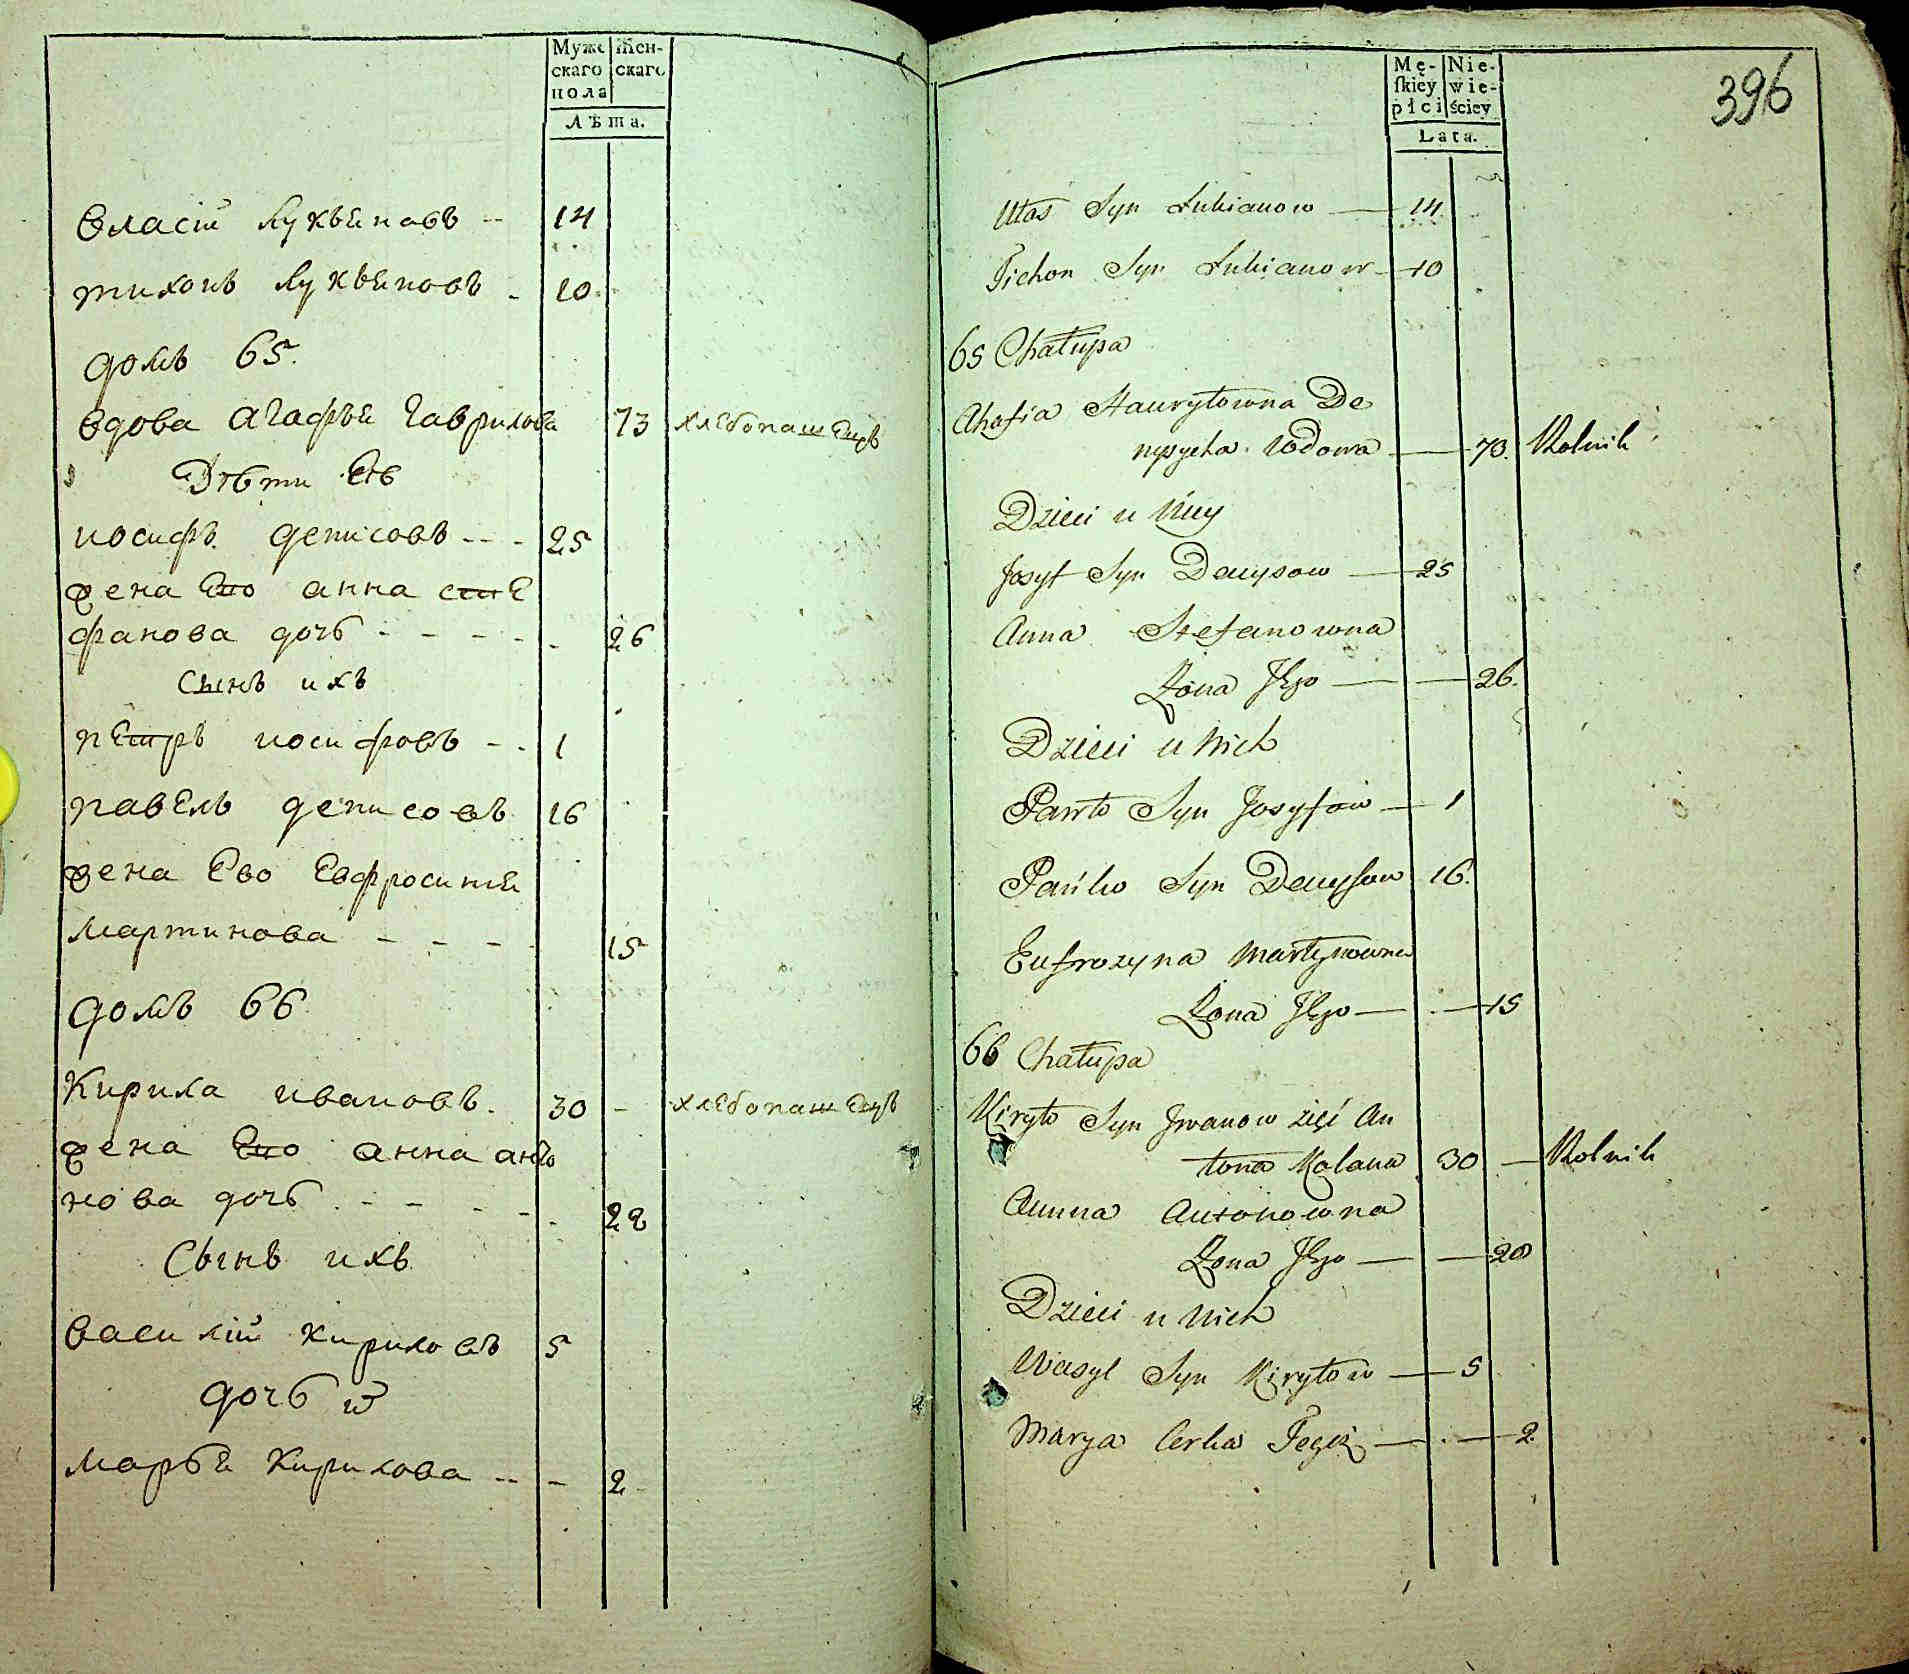 Муже Жен-
скаго скаго
пола
Лѣта.
Власій Лукьяновъ -- 14
тихонъ Лукьяновъ - 10
домъ 65.
вдова агафья гаврилова 73 хлебопашецъ
Дѣти Еѣ
иосифъ денисовъ - - - 25
жена Его анна сте
фанова дочь - - - - - 26
Сынъ ихъ
пЕтръ иосифовъ - - 1
павЕлъ денисовъ 16
жена Ево Евфросинья
мартинова - - - 15
домъ 66
Кирила ивановъ. 30 - хлебопашецъ
жена Его анна анто
нова дочь - - - - - 22
Сынъ ихъ
василій кириловъ 5
дочь
марья Кирилова -- - 2
396
Mę- Nie-
ſkiey wie-
płci ściey
Lata.
Ułas Syn Łukianow — 14
Tichon Syn Łukianow - 10
65 Chałupa
Ahafia Hauryłowna De
nysycha Wdowa — 73. Rolnik
Dzieci u Niey
Josyf Syn Denysow — 25
Anna Stefanowna
Żona Jego — — 26.
Dzieci u Nich
Pawło Syn Josyfow — 1
Pańko Syn Denysow 16.
Eufrozyna Martynowna
Żona Jego — . — 15
66 Chałupa
Kiryło Syn Jwanow zięć An
tona Kolana 30 — Rolnik
Annna Antonowna
Żona Jego — — 20
Dzieci u Nich
Wasyl Syn Kiryłow — 5
Marya Corka Tegoż — . — 2